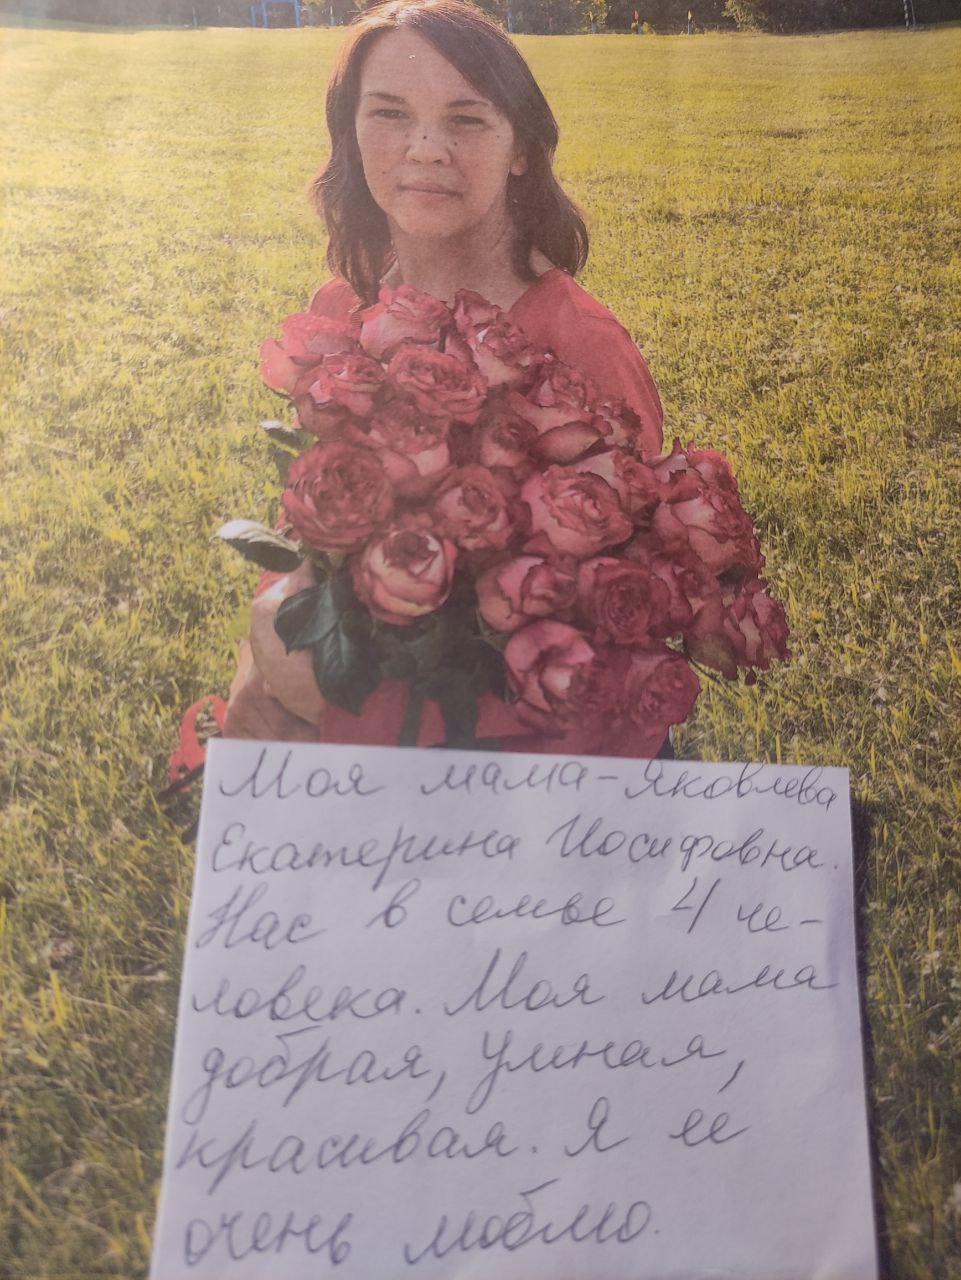 Моя мама - Яковлева
Екатерина Иосифовна.
Нас в семье 4 че-
ловека. Моя мама
добрая, умная,
красивая. Я ее
очень люблю.